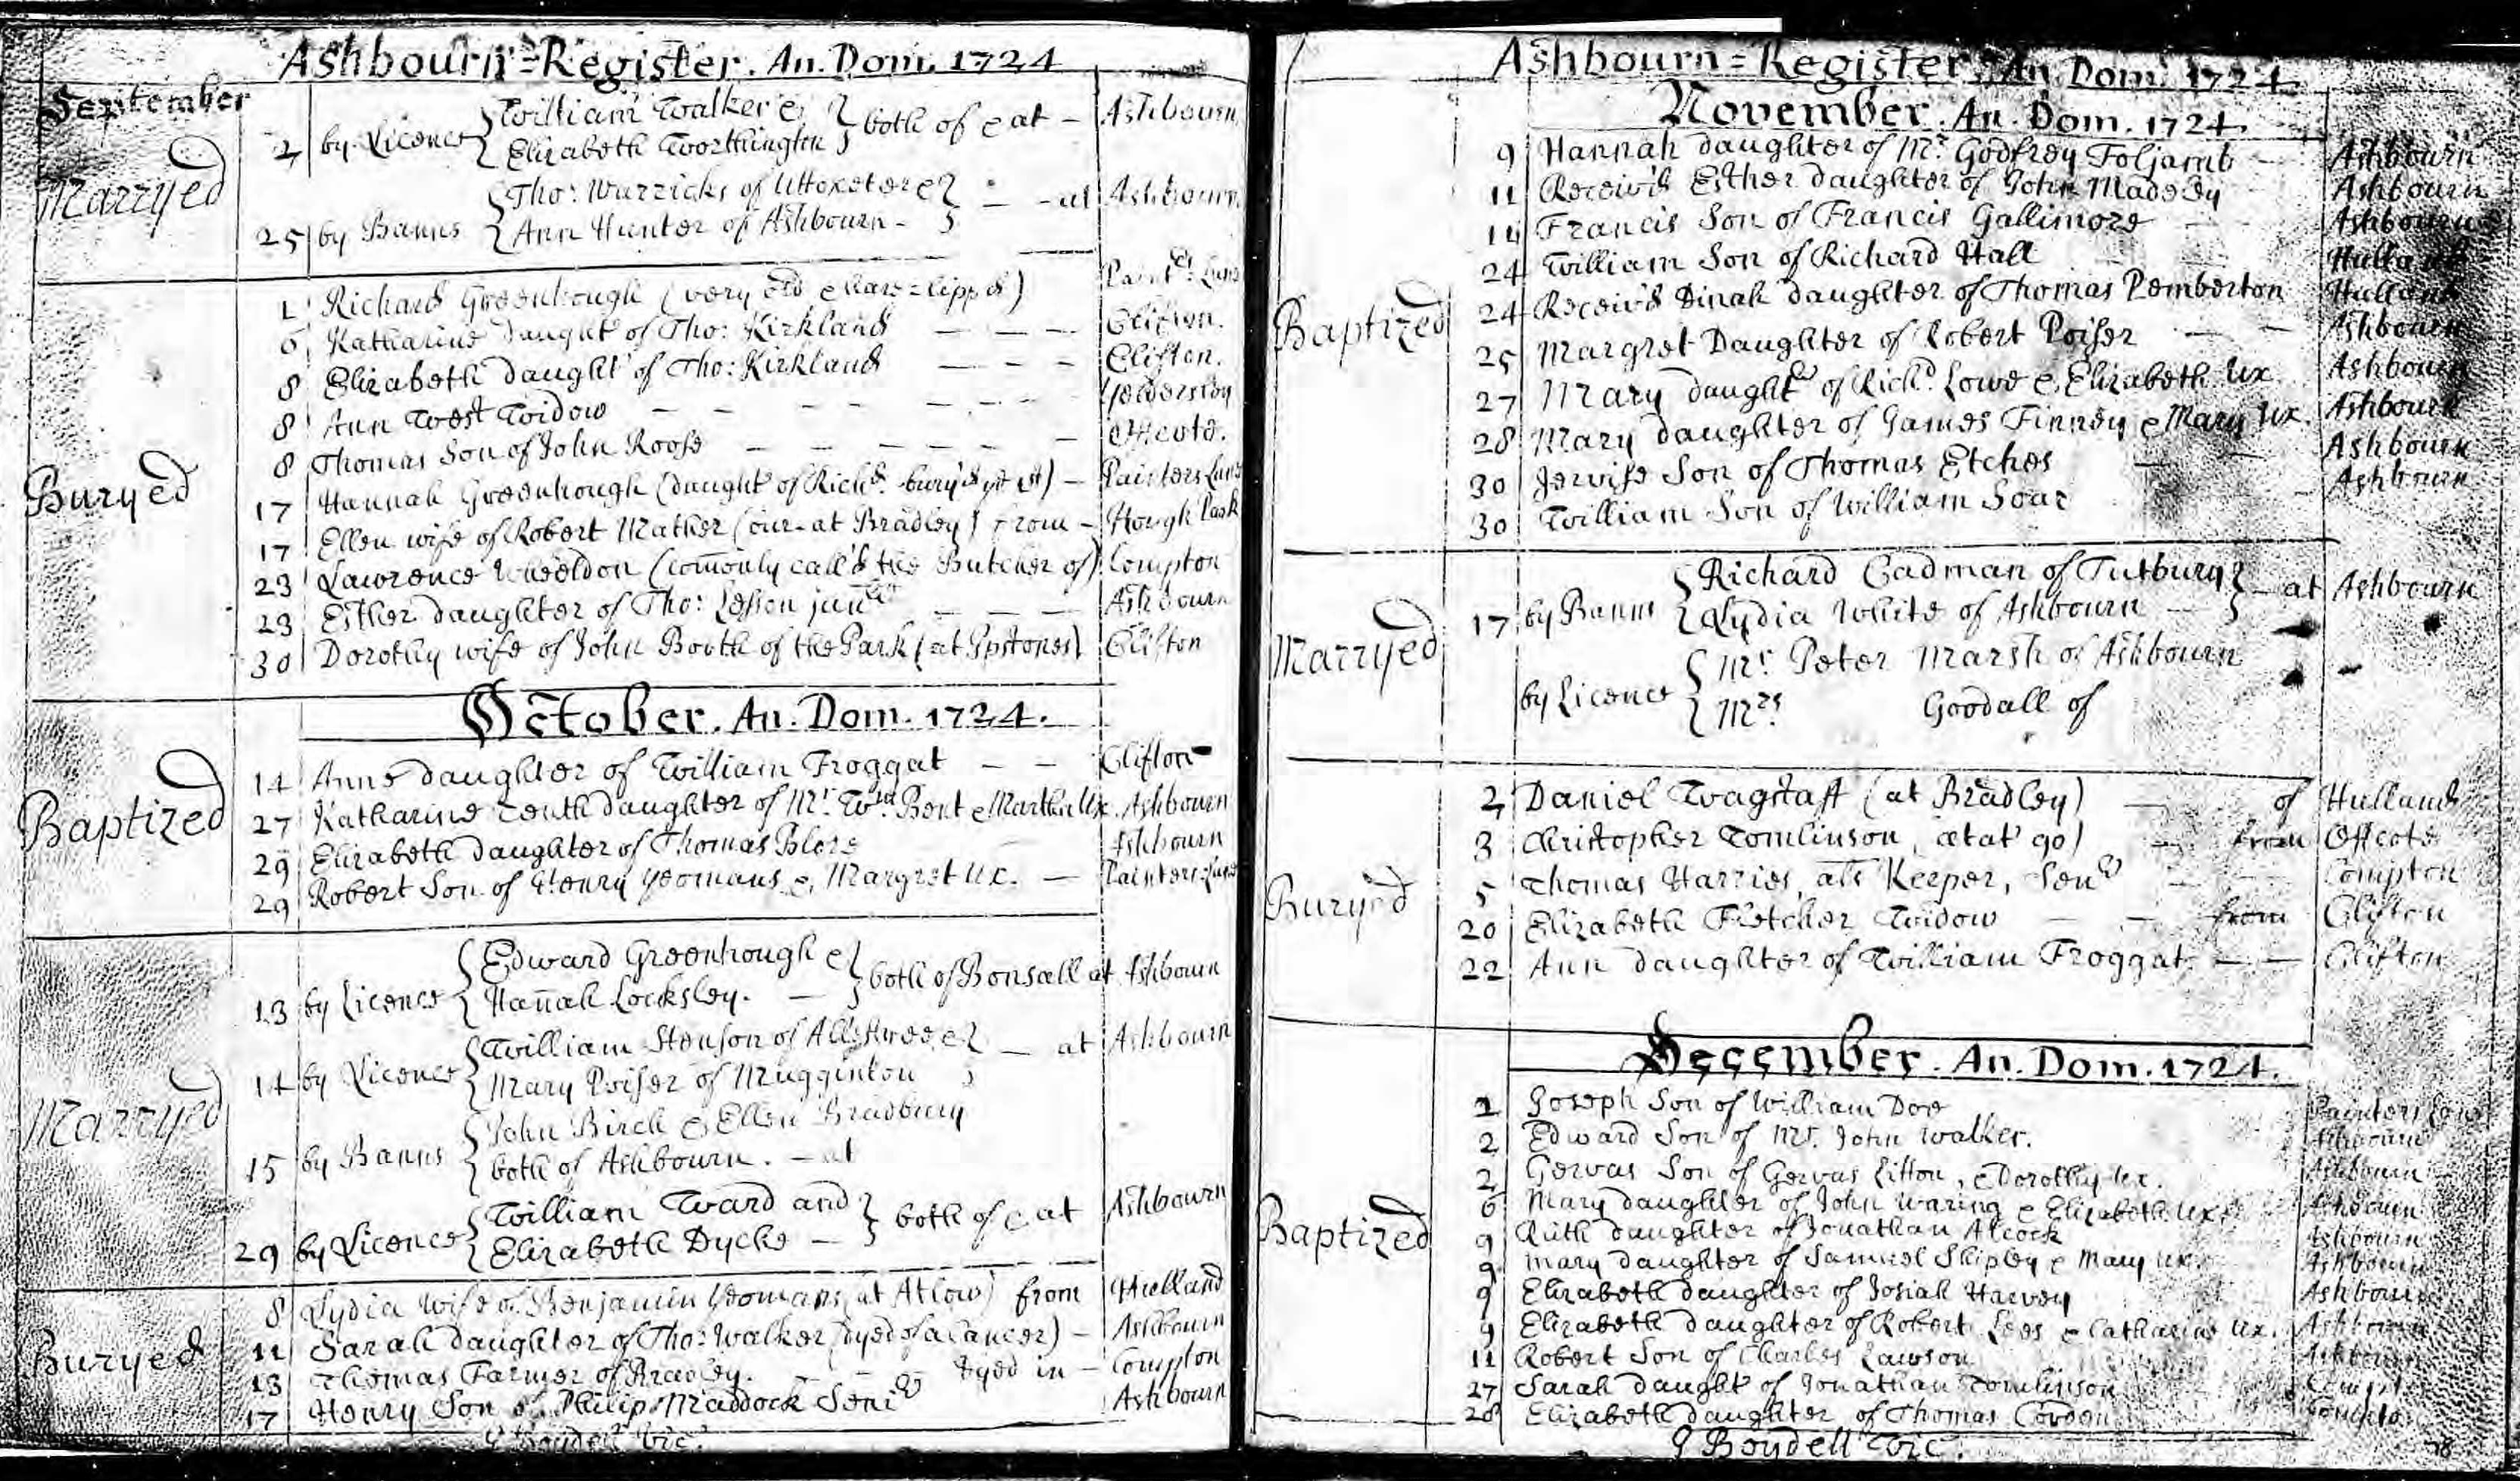 Ashbourn=Register. An. Dom. 1724
September
Marryed
2 by Licence William Walker & both of & at - Ashbourn
Elizabeth Worthington
Tho: Warricks of Uttoxeter & - - at Ashbourn
25 by Banns Ann Hunter of Ashbourn -
Buryed
1 Richard Greenhough (very old & hare=lipp'd) Paint:rs Lane
6 Katharine daught:r of Tho: Kirkland - - - Clifton.
8 Elizabeth daught:r of Tho: Kirkland - - - Clifton.
8 Ann West Widow - - - - - - Yeldersley
8 Thomas Son of John Roose - - - - - - Offcote.
17 Hannah Greenhough (daught:r of Rich:d bury'd ye 1st) - Painters Lane
17 Ellen wife of Robert Mather (bur. at Bradley) from - Hough Park
23 Lawrence Wheeldon (comonly call'd the Butcher of) Compton
23 Esther daughter of Tho: Lesson jun:r - - - Ashbourn
30 Dorothy wife of John Booth of the Park (at Ipstones) Clifton
October. An. Dom. 1724.
Baptized
14 Anne daughter of William Froggat - - Clifton
27 Katharine tenth daughter of Mr. Wm. Bent & Martha Ux. Ashbourn
29 Elizabeth daughter of Thomas Blore Ashbourn
29 Robert Son of Henry Yeomans & Margret Ux. - Painters Lane
Marryed
Edward Greenhough & both of Bonsall at Ashbourn
13 by Licence Hanah Locksley. -
William Stenson of Allestree & - at Ashbourn
14 by Licence Mary Poiser of Mugginton
John Birch & Ellen Bradbury
15 by Banns both of Ashbourn. - at
William Ward and both of & at Ashbourn
29 by Licence Elizabeth Dyche -
Buryed
8 Lydia wife of Benjamin Yeomans (at Atlow) from Hulland
11 Sarah daughter of Tho: Walker (dyed of a Cancer) - Ashbourn
13 Thomas Farmer of Bradley. - - dyed in - Compton
17 Henry Son of Philip Maddock Seni:r Ashbourn
Boydell Vic.
Ashbourn=Register. An. Dom. 1724
November. An. Dom. 1724.
Baptized
9 Hannah daughter of Mr. Godfrey Foljamb - Ashbourn
11 Receiv'd Esther daughter of John Madeley Ashbourn
14 Francis Son of Francis Gallimore Ashbourn
24 William Son of Richard Hall Hulland
24 Receiv'd Dinah daughter of Thomas Pemberton Hulland
25 Margret Daughter of Robert Poiser - - Ashbourn
27 Mary daught:r of Rich:d Lowe & Elizabeth Ux. Ashbourn
28 Mary daughter of James Finney & Mary Ux. Ashbourn
30 Jervise Son of Thomas Etches Ashbourn
30 William Son of William Soar Ashbourn
Marryed
Richard Cadman of Tutbury - at Ashbourn
17 by Banns Lydia White of Ashbourn -
Mr. Peter Marsh of Ashbourn
by Licence Mrs. Goodall of
Buryed
2 Daniel Wagstaff (at Bradley) - of Hulland
3 Christopher Tomlinson, ætat 90) - from Offcote
5 Thomas Harries, als Keeper, Sen:r - Compton
20 Elizabeth Fletcher Widow - - from Clifton
22 Ann daughter of William Froggat - - Clifton
December. An. Dom. 1724.
Baptized
1 Joseph Son of William Doe Painters Lane
2 Edward Son of Mr. John Walker. Ashbourn
2 Gervas Son of Gervas Litton, & Dorothy Ux. Ashbourn
6 Mary daughter of John Waring & Elizabeth Ux. Ashbourn
9 Ruth daughter of Jonathan Alcock Ashbourn
9 Mary daughter of Samuel Shipley & Mary Ux. Ashbourn
9 Elizabeth daughter of Josiah Harvey Ashbourn
9 Elizabeth daughter of Robert Lees & Catharine Ux. Ashbourn
11 Robert Son of Charles Lawson Ashbourn
27 Sarah daught:r of Jonathan Tomlinson Compton
28 Elizabeth daughter of Thomas
Boydell Vic.